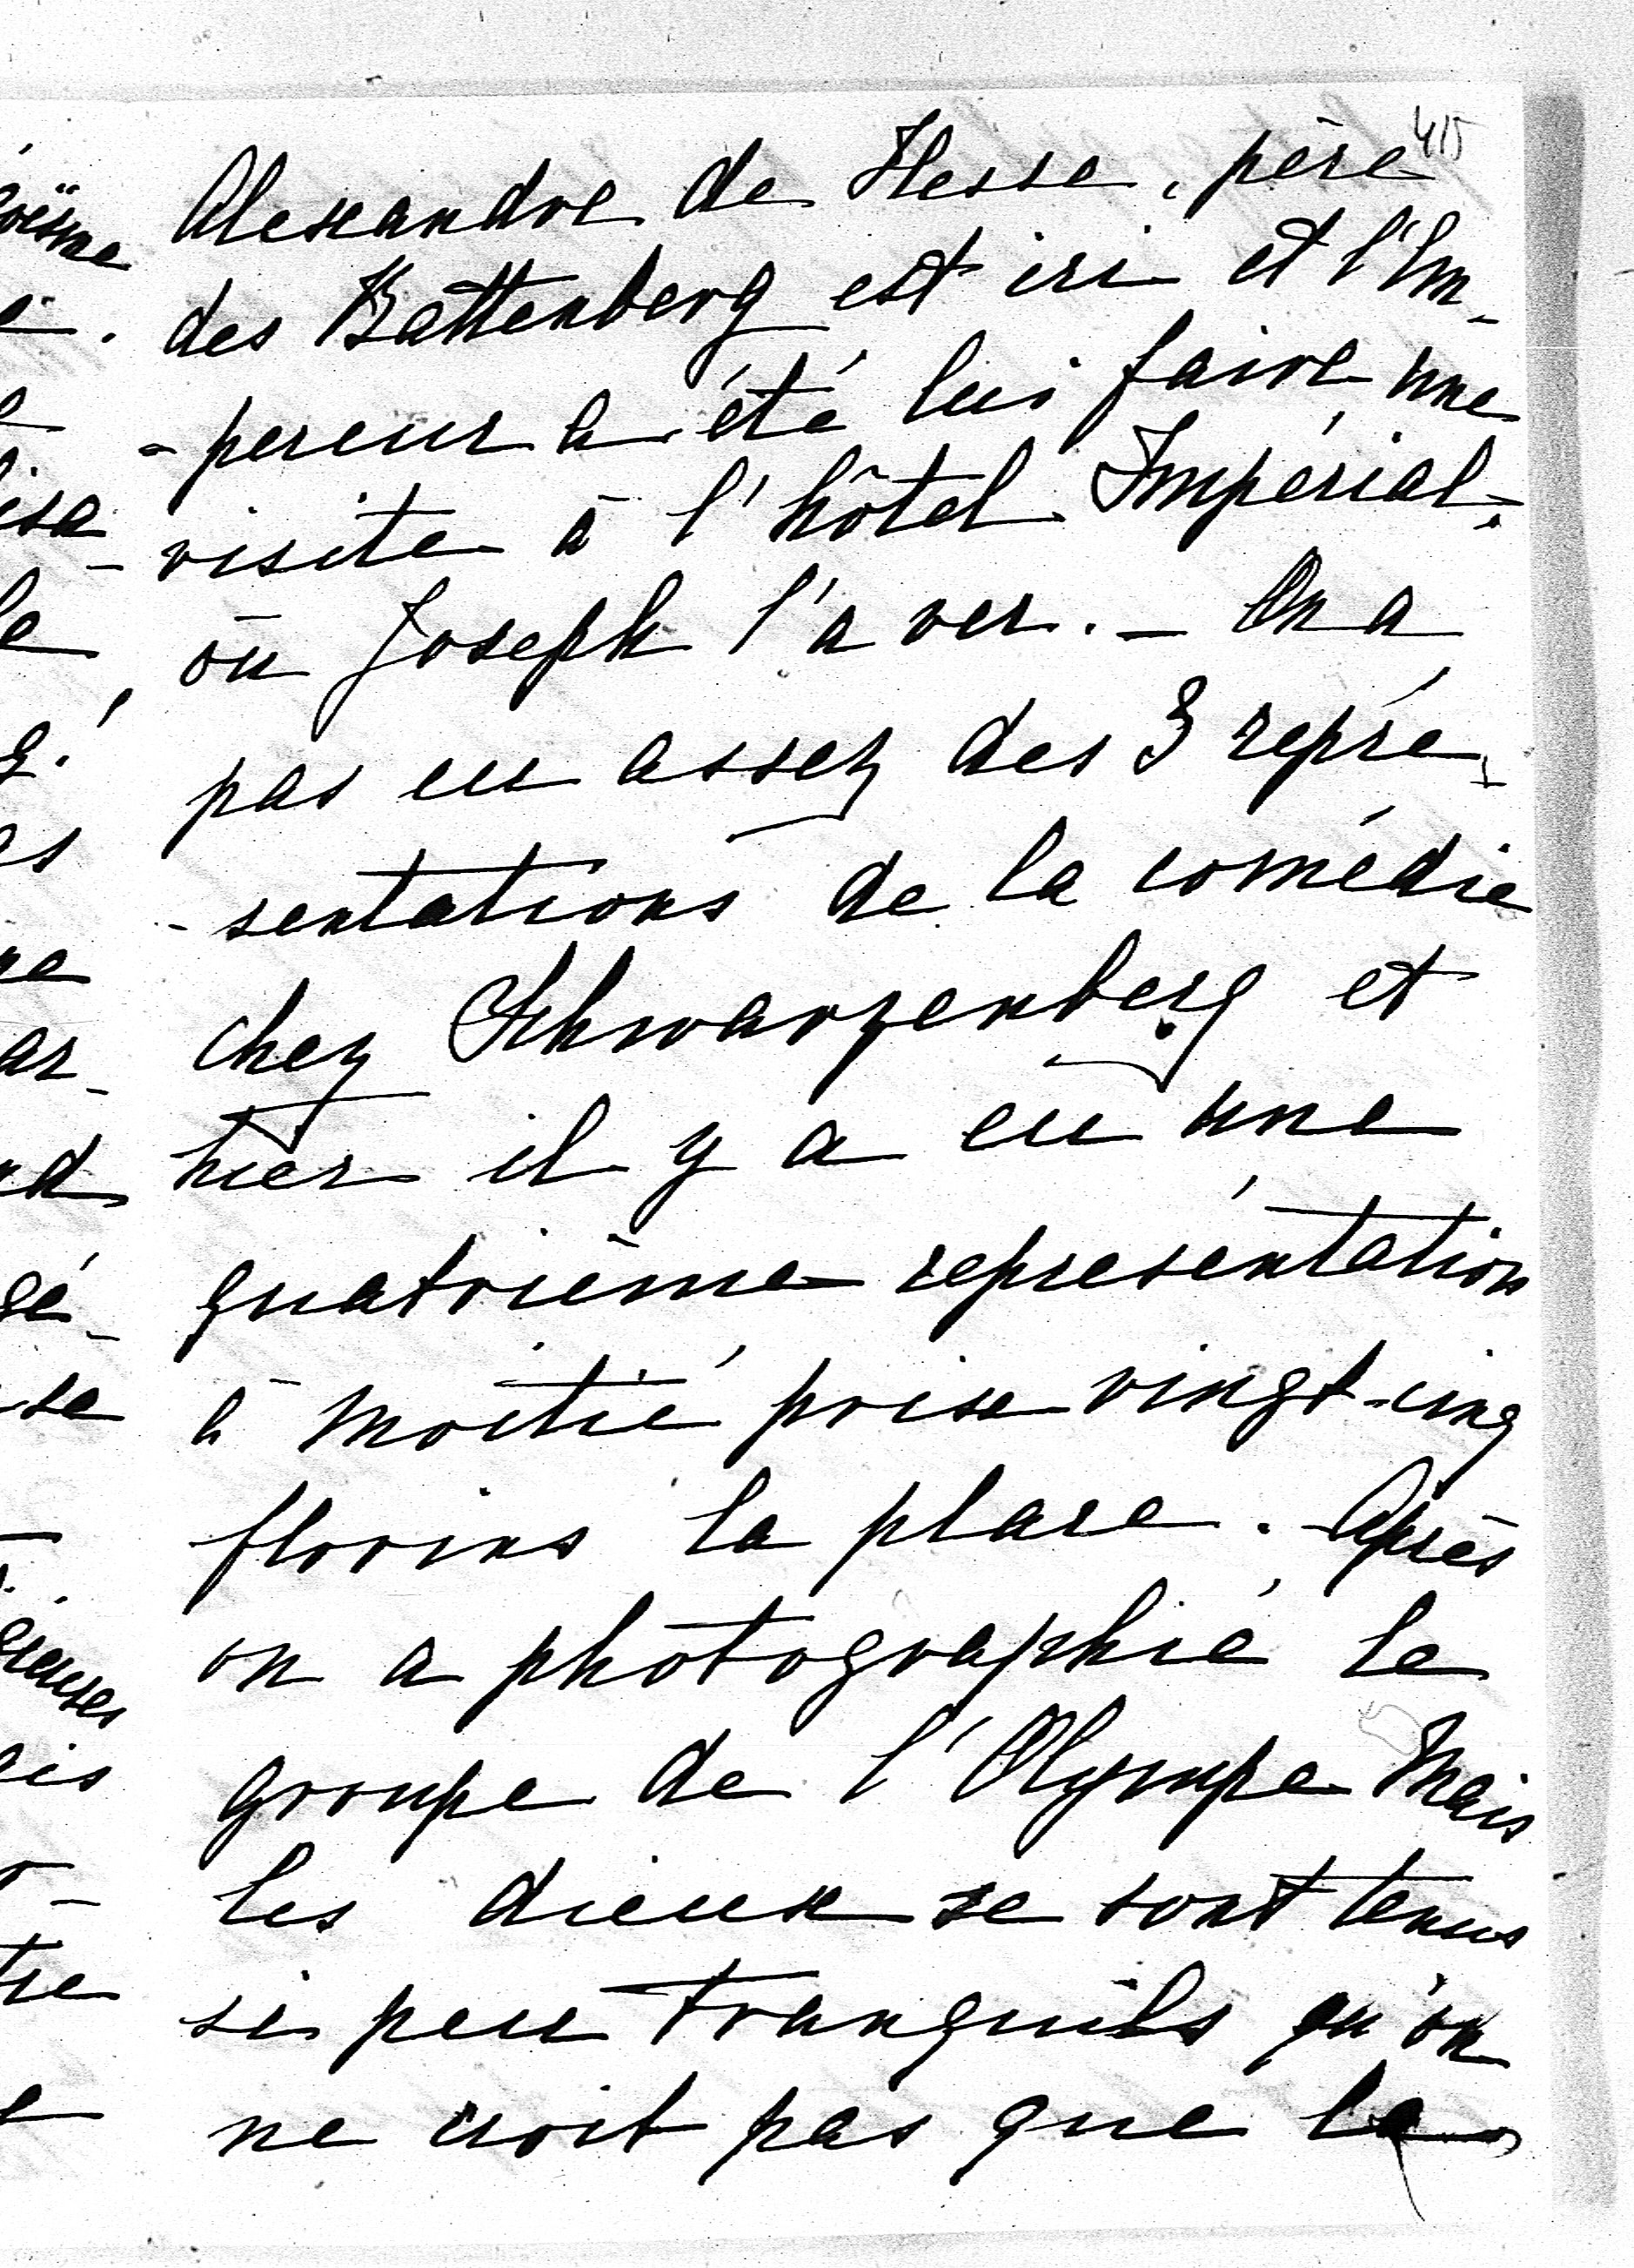 415
Alexandre de Hesse, père
des Battenberg est ici et l'Em-
-pereur a été lui faire une
visite à l'hôtel Impérial,
où Joseph l'a vu. - On a
pas eu assez des 3 repré-
-sentations de la comédie
chez Schwarzenberg et
hier il y a eu une
quatrième représentation
à moitié prise vingt-cinq
florins la place. - Après
on a photographié le
groupe de l'Olympe mais
les dieux se sont tenus
si peu tranquils qu'on
ne croit pas que la